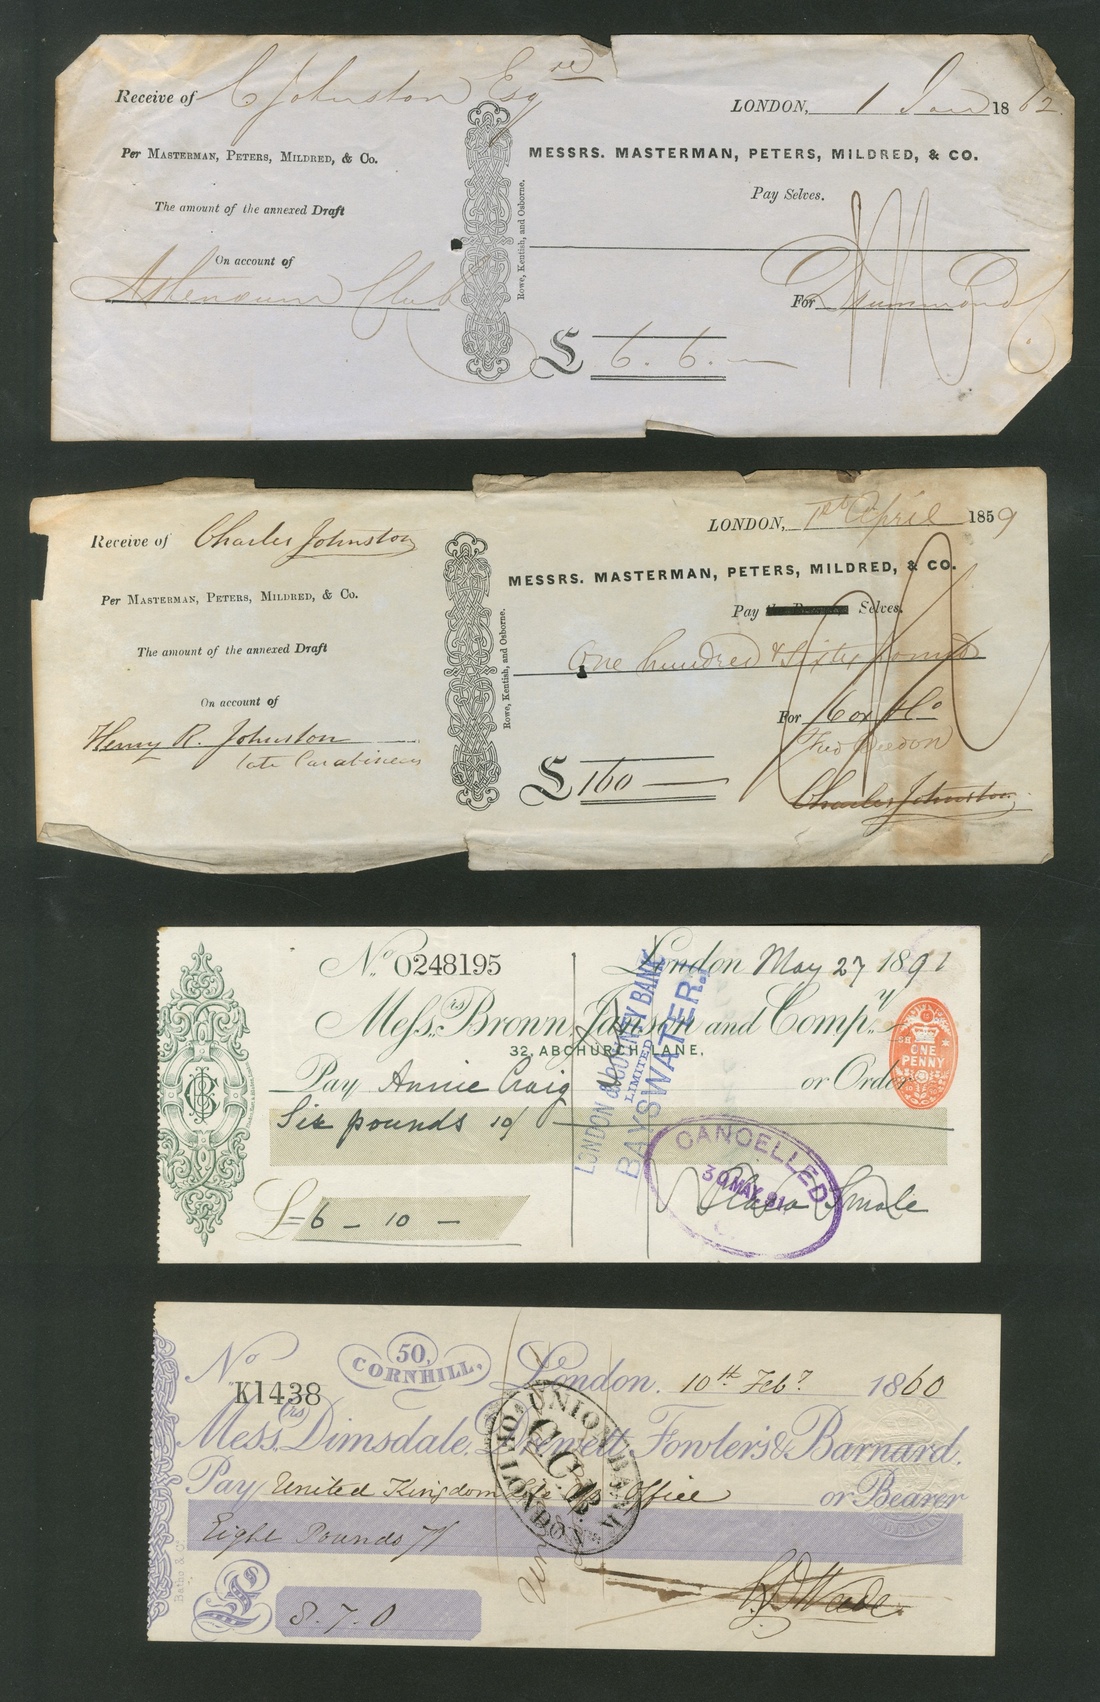 Receive of C Johnston Esqre
Per MASTERMAN, PETERS, MILDRED, & Co.
The amount of the annexed Draft
On account of
Athenaeum Club
Rowe, Kentish, and Osborne.
LONDON, 1 Jan 1862.
MESSRS. MASTERMAN, PETERS, MILDRED, & CO.
Pay Selves.
For Drummond
£ 6. 6. —
Receive of Charles Johnston
Per MASTERMAN, PETERS, MILDRED, & Co.
The amount of the annexed Draft
On account of
Henry R. Johnston
late Carabineers
Rowe, Kentish, and Osborne.
LONDON, 1st April 1859
MESSRS. MASTERMAN, PETERS, MILDRED, & CO.
Pay Selves.
One hundred & sixty pounds
For Cox & Co
£ 160 —
Charles Johnston
No. 0248195
London May 27 1891
Messrs. Brown Janson and Compy.
32, ABCHURCH LANE,
Pay Annie Craig or Order
Six pounds 10/
£ 6 — 10 —
Clara Smale
ONE PENNY
LONDON & COUNTY BANK
LIMITED
BAYSWATER.
CANCELLED
30 MAY. 91
No K1438
50, CORNHILL.
London. 10th Feby. 1860
Messrs Dimsdale, Drewett, Fowlers & Barnard.
Pay United Kingdom Life Ass Office or Bearer
Eight Pounds 7/
£ 8. 7. 0
Batho & Co
UNION BANK OF LONDON
C.C.B.